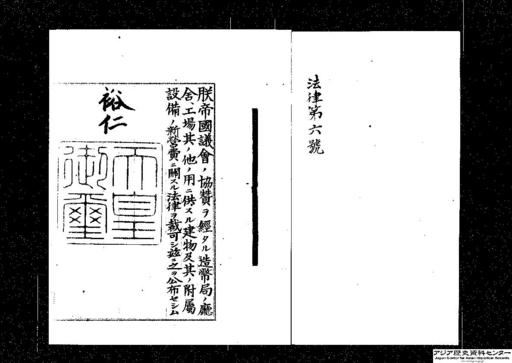 法律第六號
朕帝國議會ノ協贊ヲ經タル造幣局ノ廳
舍、工場其ノ他ノ用ニ供スル建物及其ノ附屬
設備ノ新營費ニ關スル法律ヲ裁可シ玆ニ之ヲ公布セシム
裕仁
天皇
御璽
アジア歴史資料センター
Japan Center for Asian Historical Records